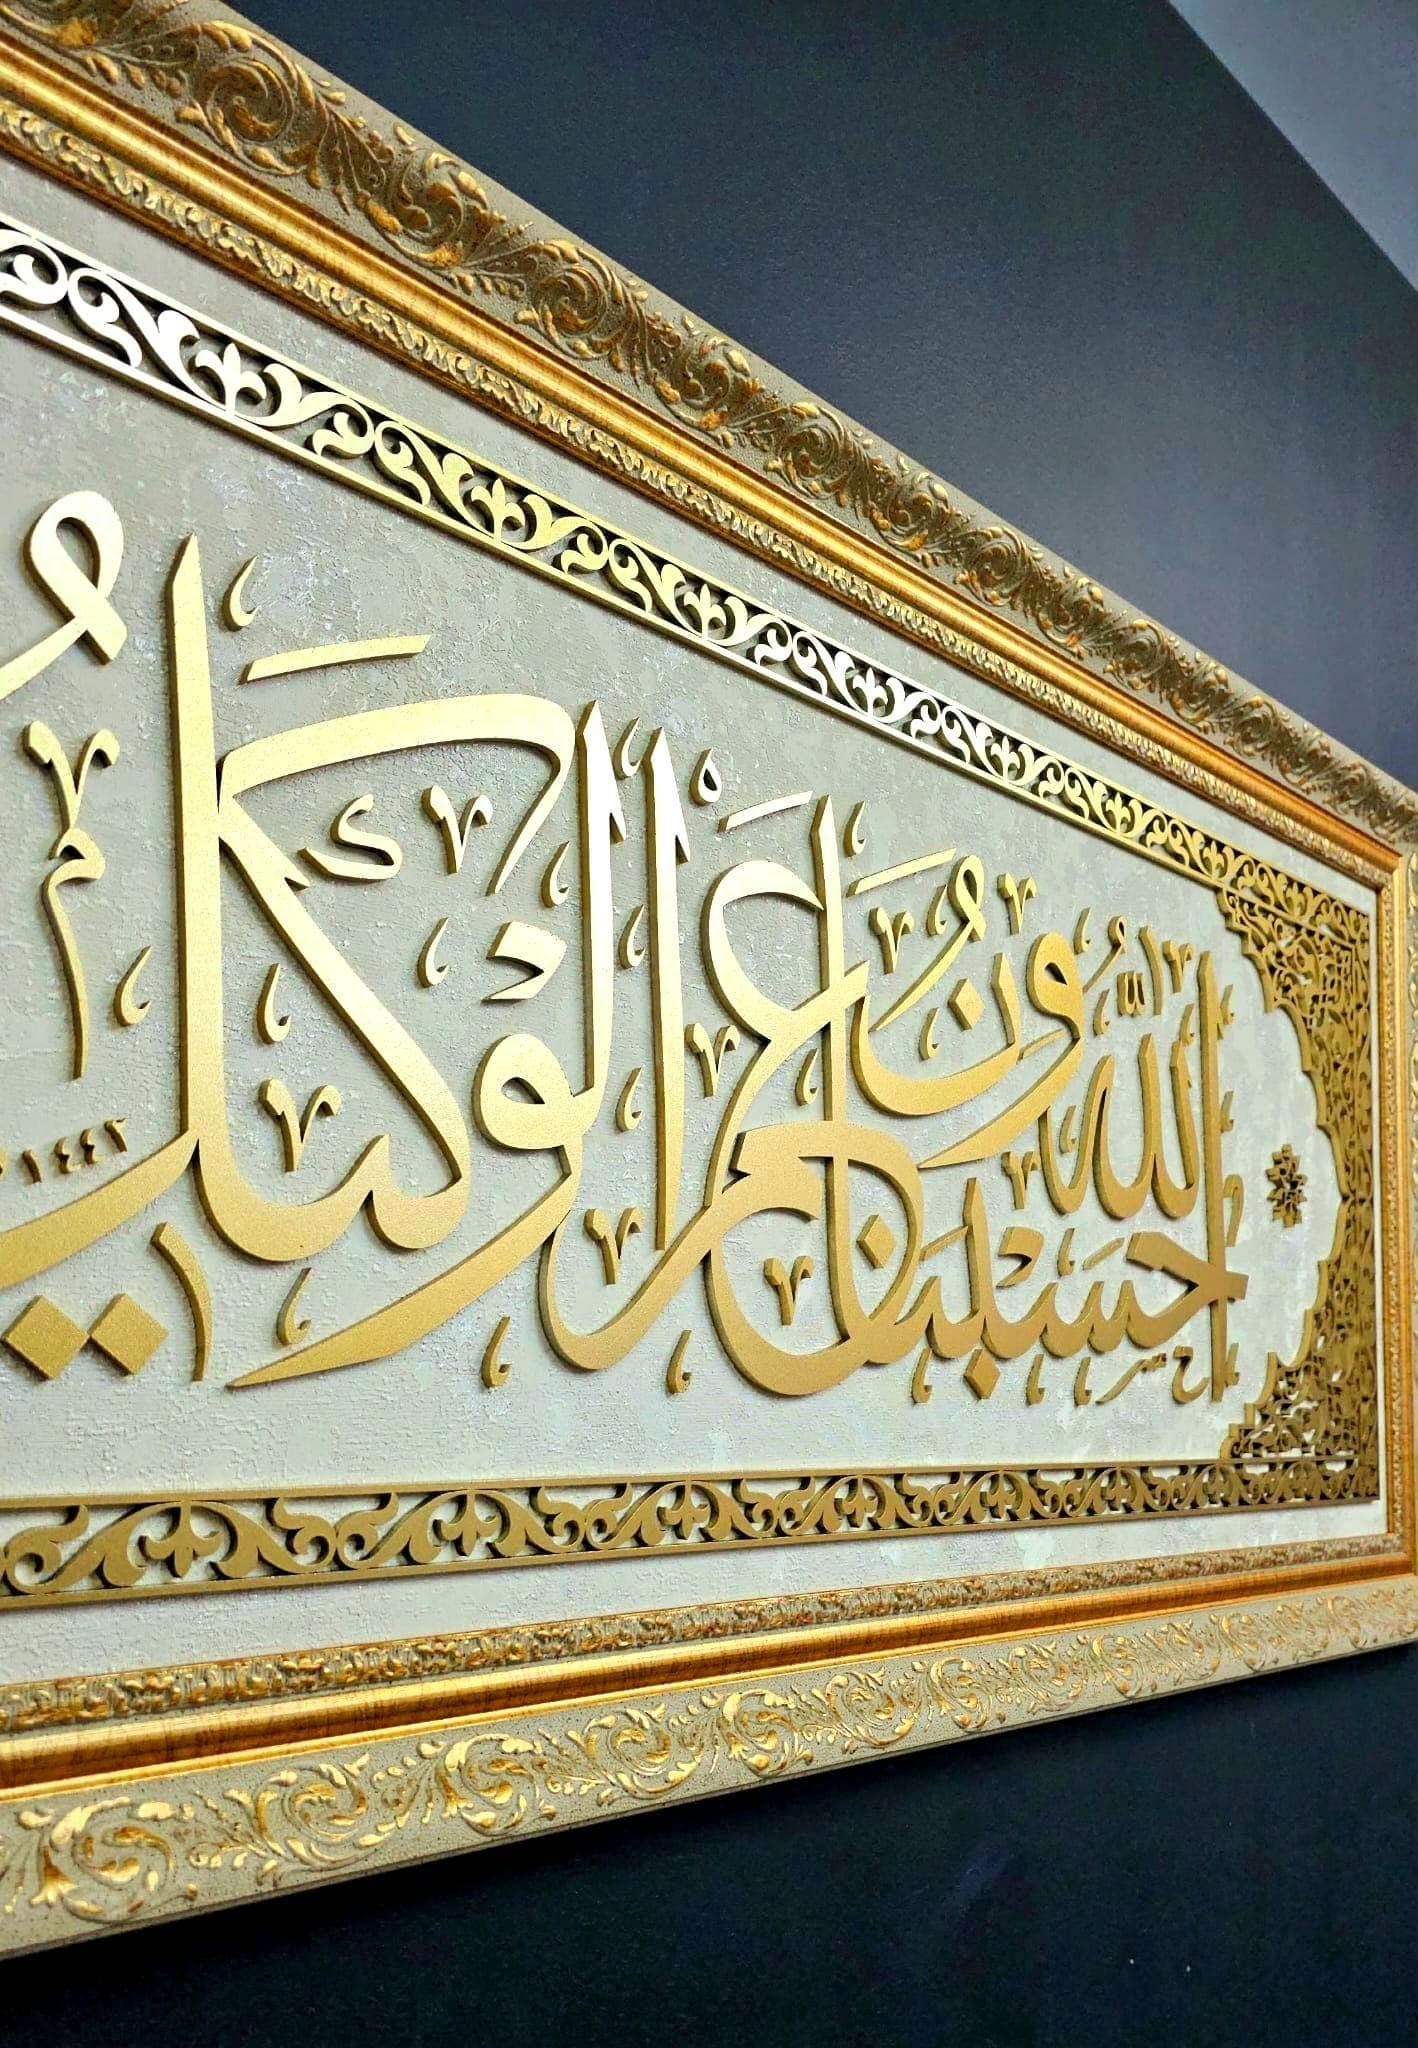 حَسْبُنَا اللَّهُ وَنِعْمَ الْوَكِيلُ
١٤٤٢